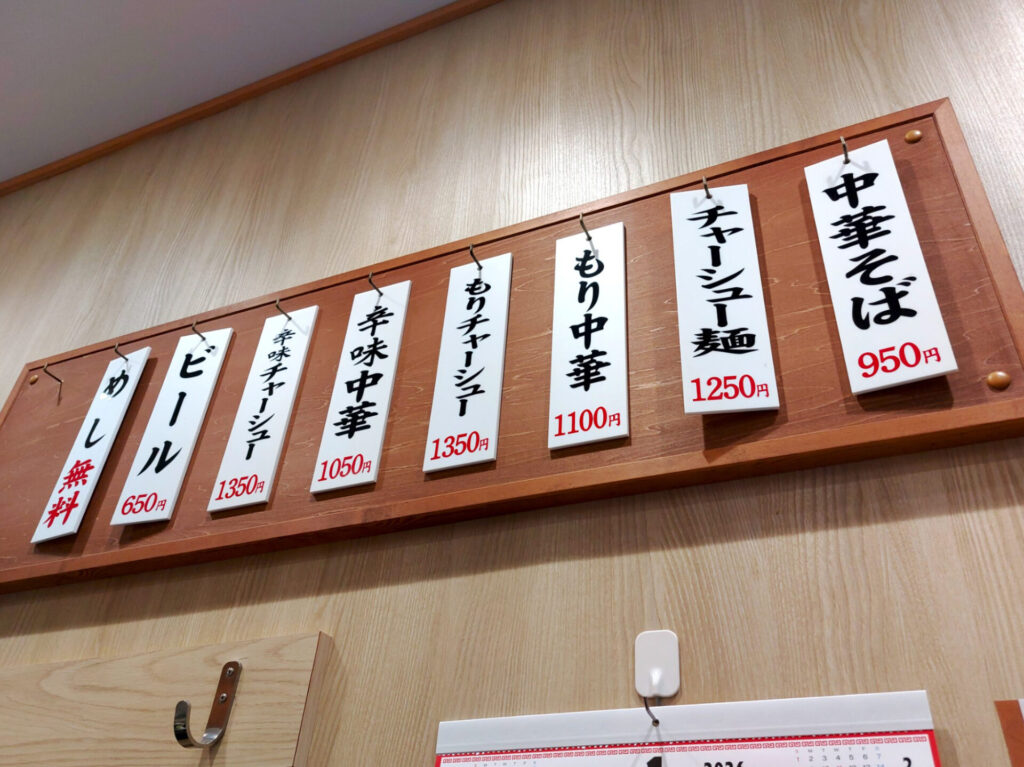 中華そば
950円
チャーシュー麺
1250円
もり中華
1100円
もりチャーシュー
1350円
辛味中華
1050円
辛味チャーシュー
1350円
ビール
650円
めし無料
1
2026
2